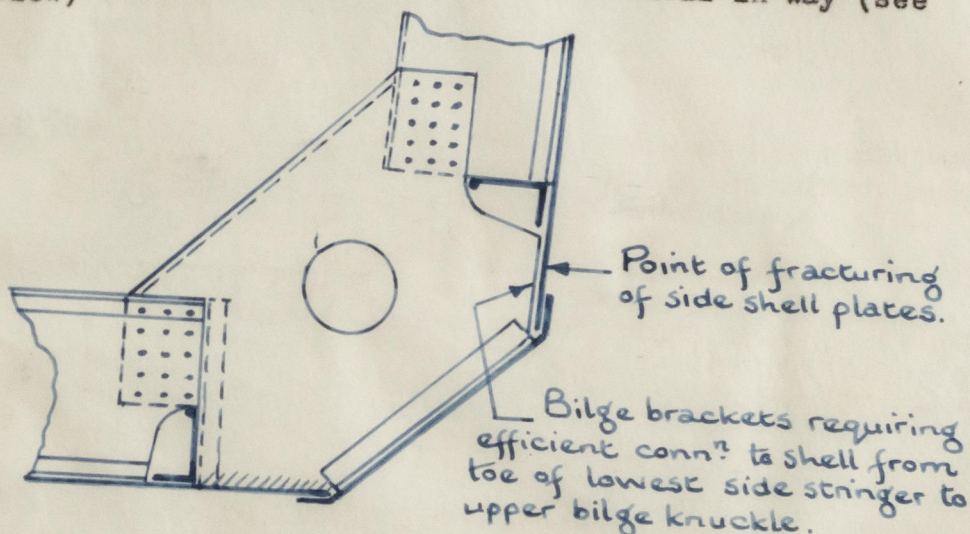 in way (see
Point of fracturing
of side shell plates.
Bilge brackets requiring
efficient connⁿ. to shell from
toe of lowest side stringer to
upper bilge knuckle.